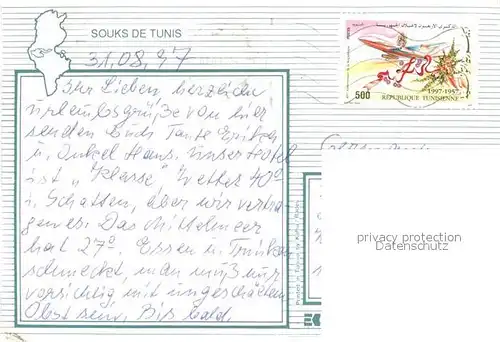 SOUKS DE TUNIS
31.08.97
Ihr Lieben herzliche
Urlaubsgrüße von hier
senden Euch Tante
u. Onkel Hans. Unser Hotel
ist "Klasse", Wetter 40°
i. Schatten, aber wir vertra-
gen es. Das Mittelmeer
hat 27°. Essen u. Trinken
schmeckt, man muß nur
vorsichtig mit ungeschälten
Obst sein. Bis bald.
500
1997-1957
REPUBLIQUE TUNISIENNE
privacy protection
Datenschutz